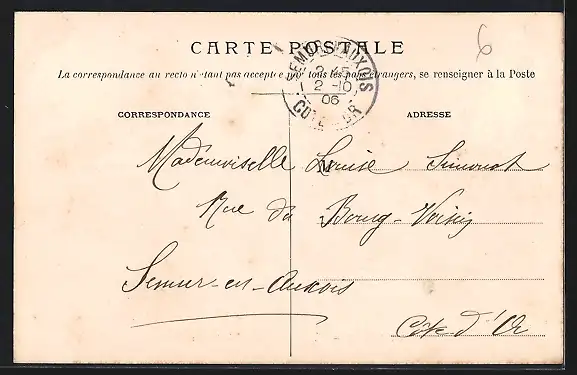 6
CARTE POSTALE
La correspondance au recto n'étant pas acceptée par tous les pays étrangers, se renseigner à la Poste
SEMUR-EN-AUXOIS
2 -10
06
COTE-D'OR
CORRESPONDANCE
ADRESSE
M
Mademoiselle Louise Simonot
Rue du Bourg-Voisin
Semur-en-Auxois
Côte-d'Or